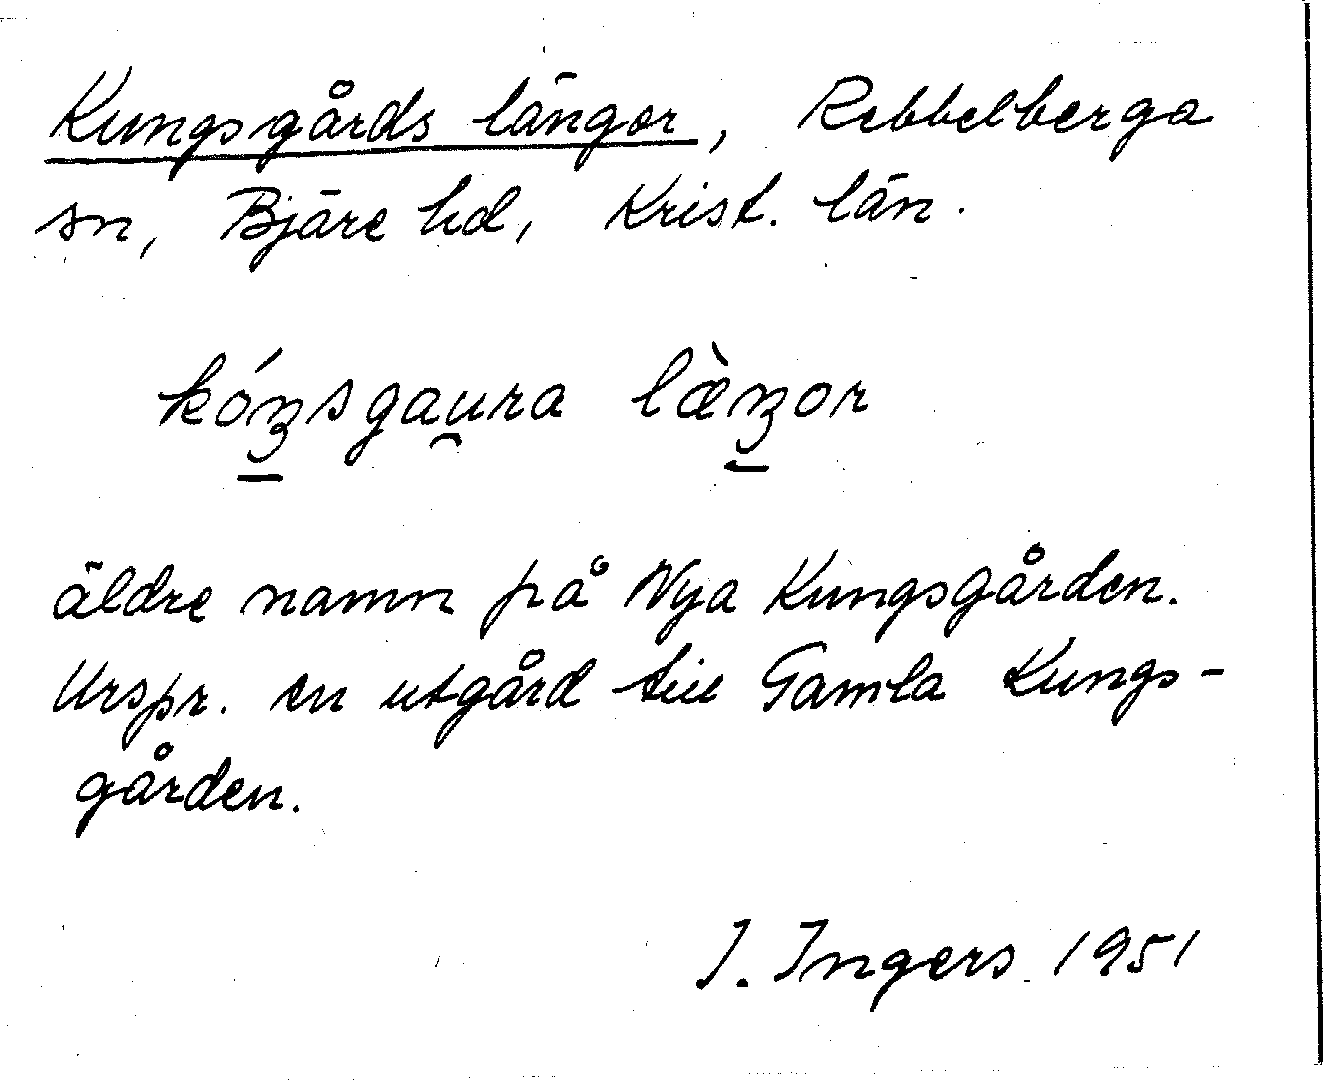 Kungsgårds längor, Rebbelberga
sn, Bjäre hd, Krist. län.
kóŋsgau̯ra læ̀ŋor
äldre namn på Nya Kungsgården.
Urspr. en utgård till Gamla Kungs-
gården.
I. Ingers 1951